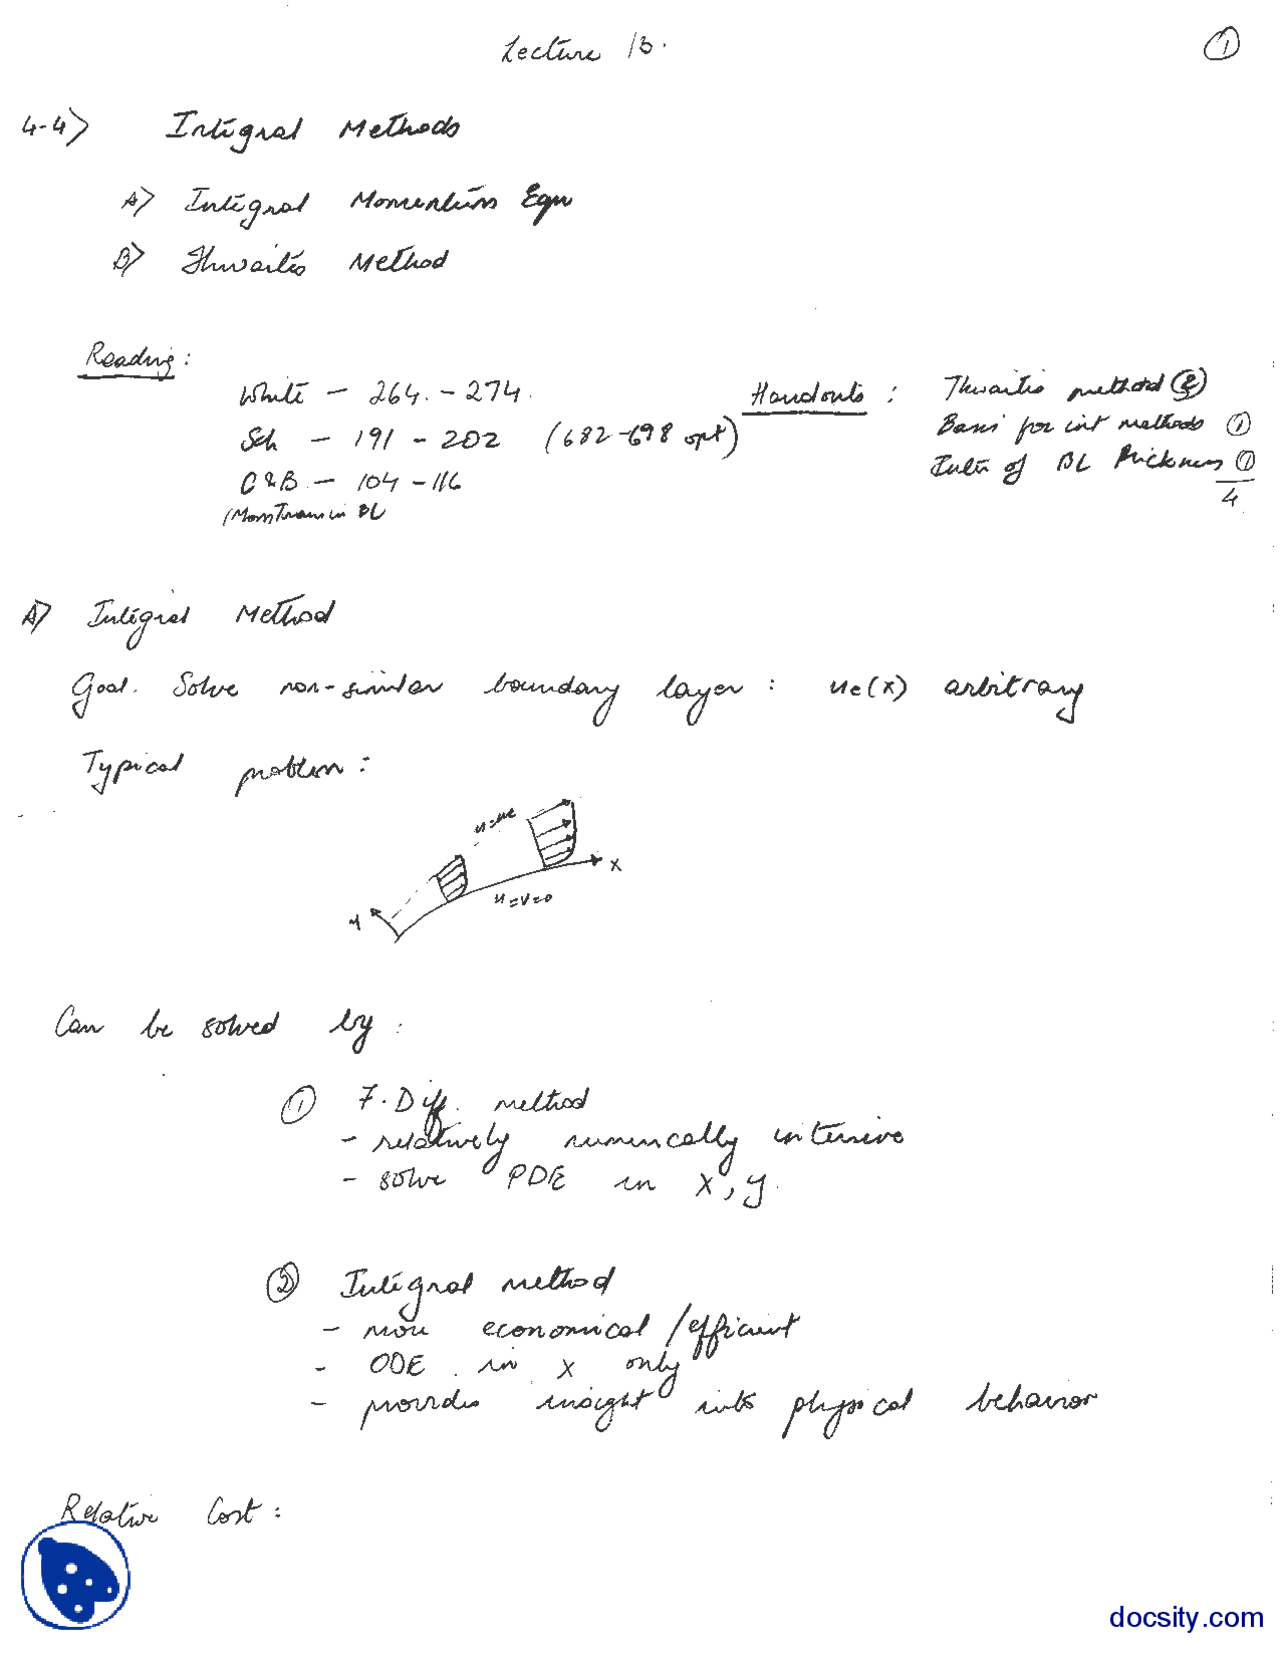 Lecture 13.
①
4-4) Integral Methods
A) Integral Momentum Eqn
B) Thwaites Method
Reading:
White - 264 - 274.
Sch - 191 - 202 (682-698 opt)
C&B - 104 - 116
(Mom Trans in BL
Handouts : Thwaites method ②
Basis for int methods ①
of BL thickness ①
4
A) Integral Method
Goal. Solve non-similar boundary layer : ue(x) arbitrary
Typical problem :
u=ue
x
u=v=0
y
Can be solved by :
① F. Diff. method
- relatively numerically intensive
- solve PDE in x, y.
② Integral method
- more economical/efficient
- ODE in x only
- provides insight into physical behavior
Relative Cost :
docsity.com